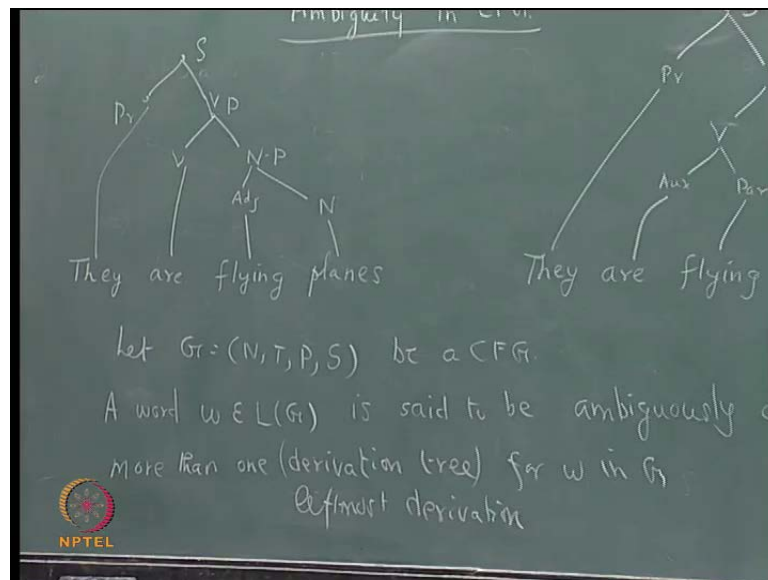 Ambiguity in CFG.
S
Pr VP
V N.P
Adj N
They are flying planes
Pr
V
Aux Par
They are flying
Let G = (N, T, P, S) be a CFG.
A word w ∈ L(G) is said to be ambiguously
more than one (derivation tree) for w in G
leftmost derivation
NPTEL